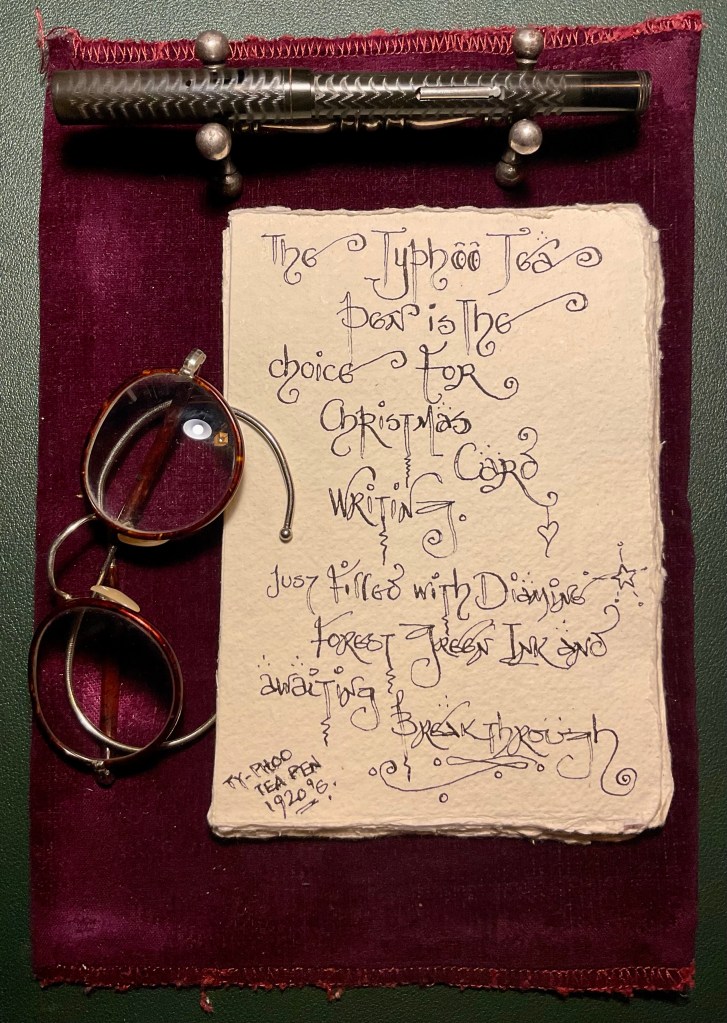 The Typhöö Tea
Pen is The
choice For
Christmas
Card
Writing.
Just Filled with Diamine
Forest Green Ink and
awaiting
Breakthrough
TY-PHOO
TEA PEN
1920's.